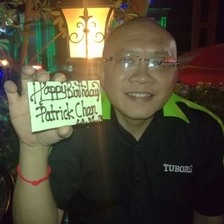 Happy Birthday
Patrick Chan
TUBORG